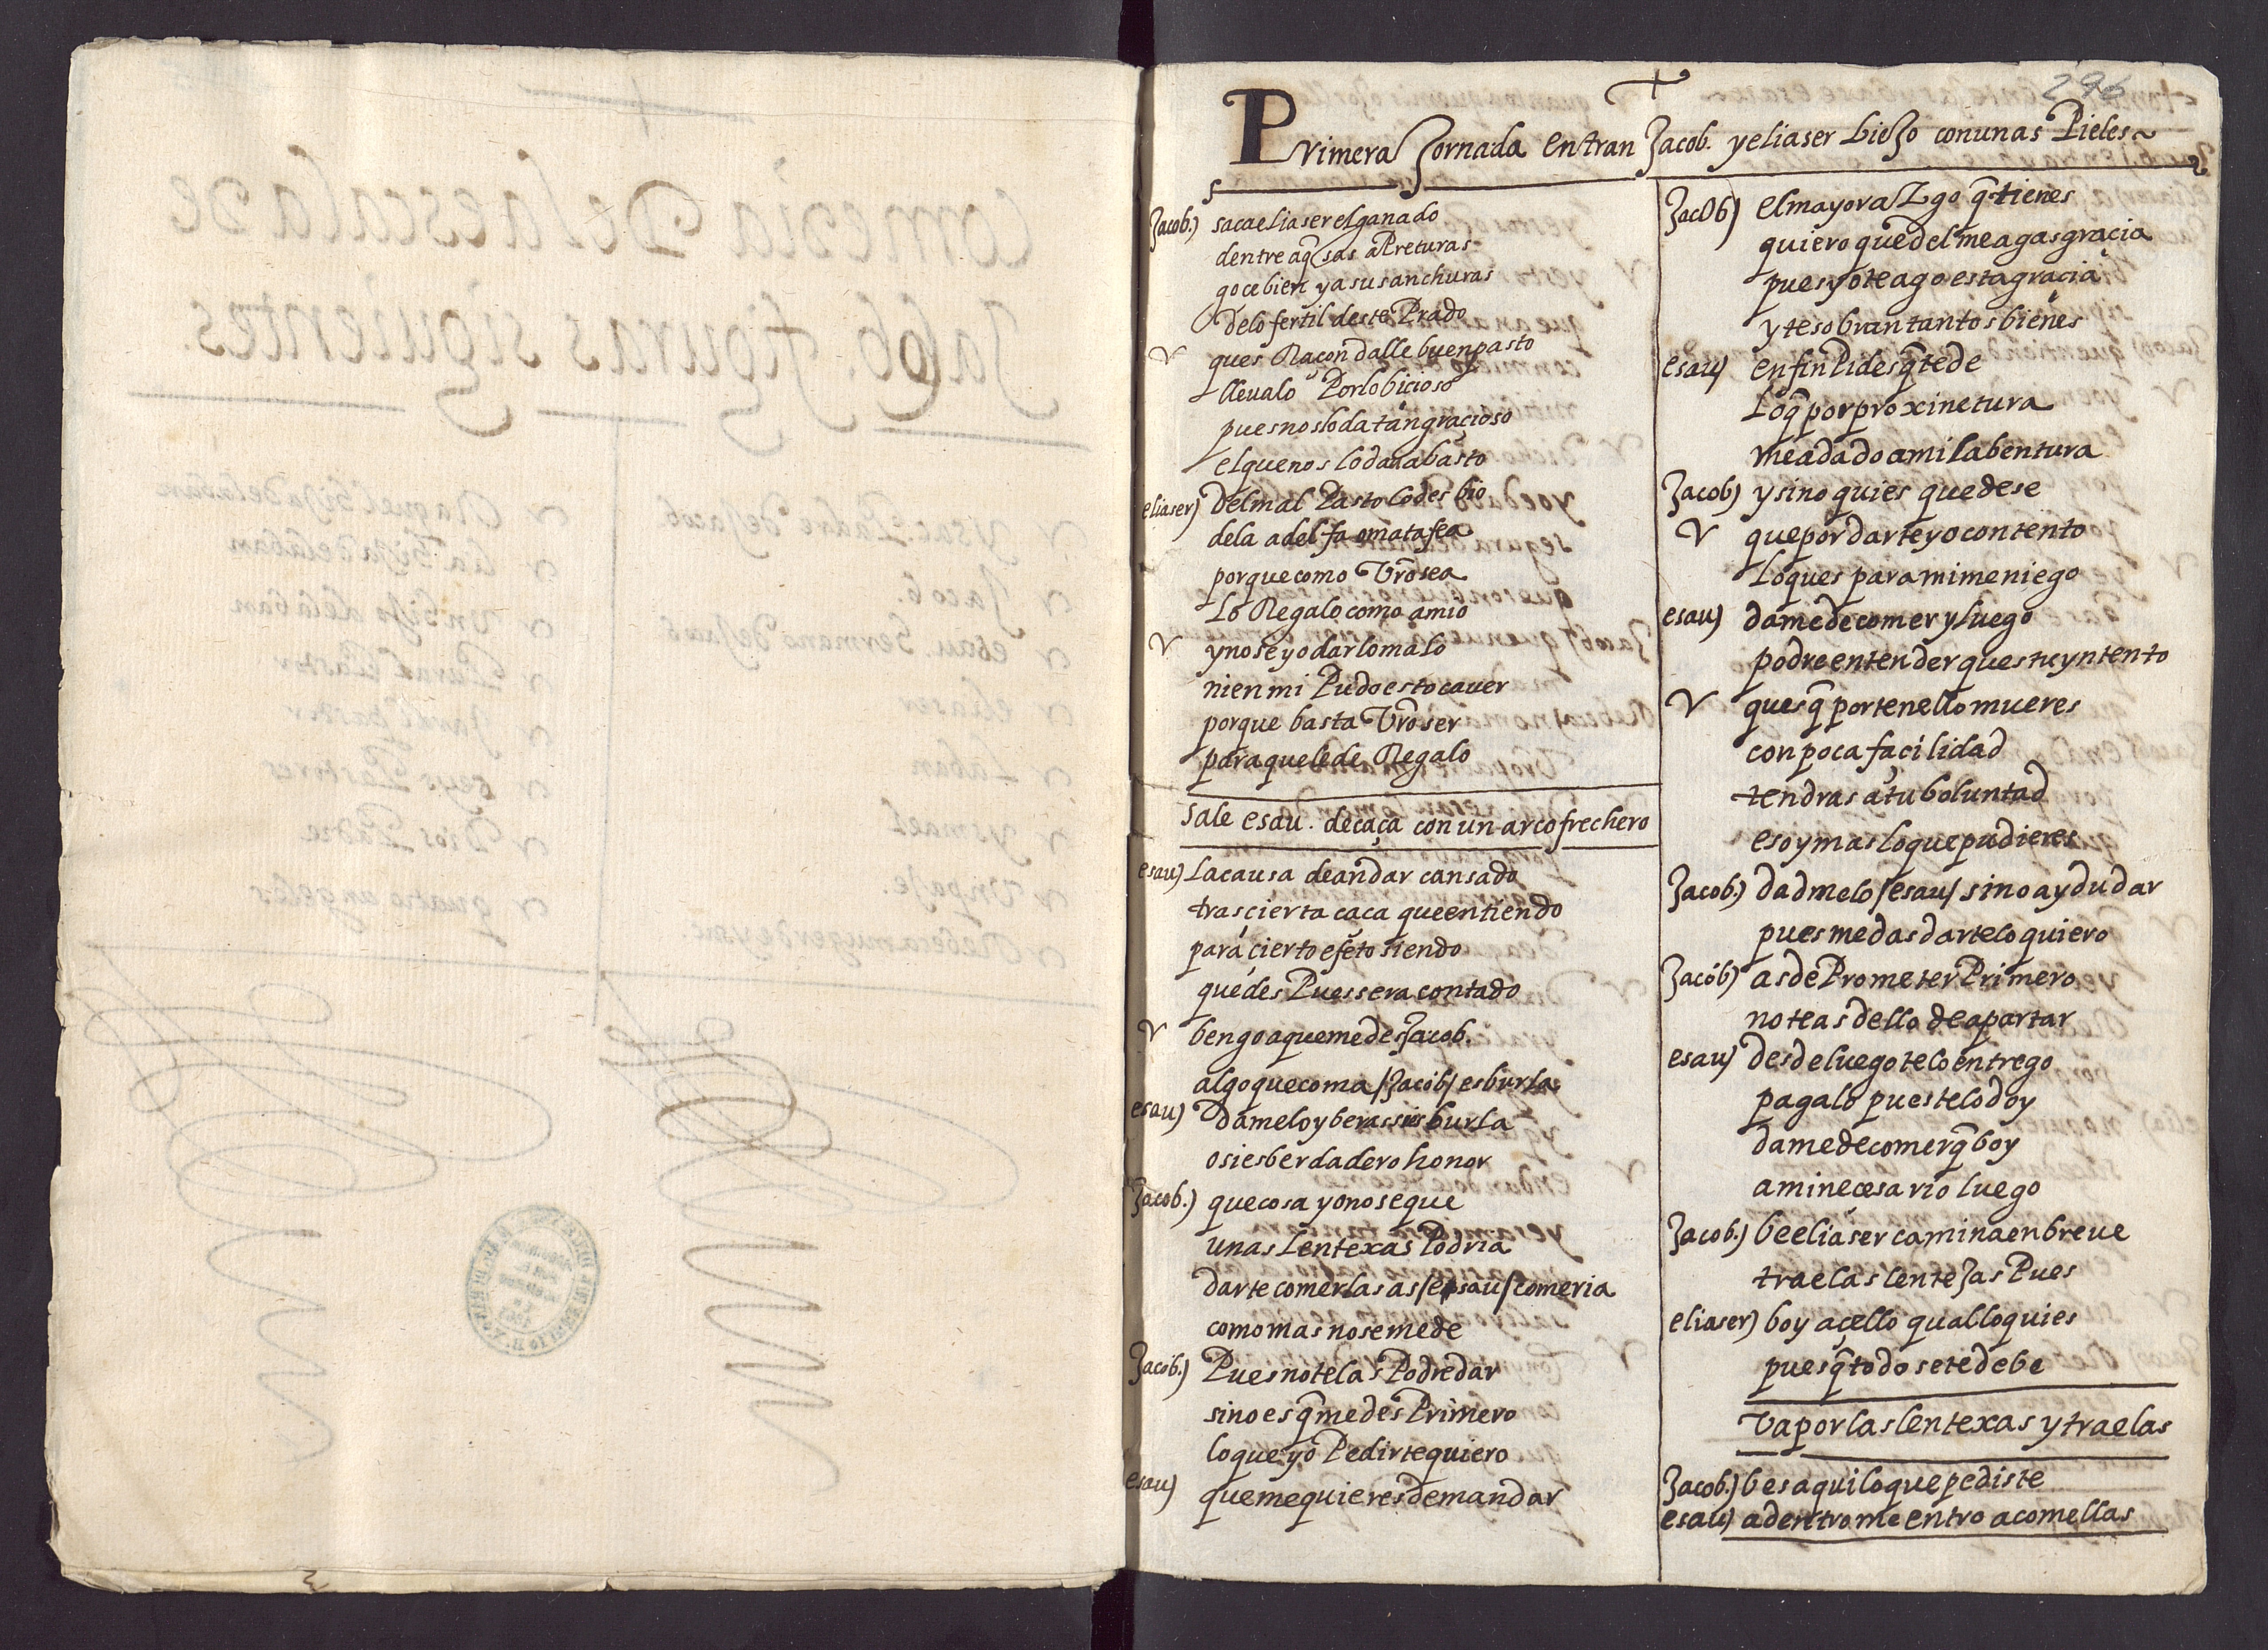 296
Primera Jornada entran Jacob. y eliaser biejo con unas Pieles
Jacob.) saca eliaser el ganado
dentre aq̃sas aPreturas
goce bien y a sus anchuras
de lo fertil deste Prado
ques Racon dalle buen pasto
lleualo Por lo bicioso
pues nos lo da tan graçioso
el que nos lo da a basto
eliaser) del mal Pasto lo desbio
de la adelfa o mata fea
porque como Vr̃o sea
lo Regalo como a mio
y no se yo dar lo malo
ni en mi Pudo esto caver
porque basta Vr̃o ser
para que le de Regalo
sale esau. de caça con un arco frechero
esau) La causa de andar cansado
tras çierta caca que entiendo
para çierto efeto siendo
que des Pues sera contado
bengo a que me des Jacob.
algo que coma /Jacob/ es burla
esau) Damelo y beras si es burla
o si es berdadero honor
Jacob.) que cosa yo no se que
unas Lentexas Podria
darte comerlas as /esau/ comeria
como mas no se me de
Jacob.) Pues no te las Podre dar
sino es q̃ me des Primero
lo que yo Pedirte quiero
esau) que me quieres demandar
Jacob) el mayorazgo q̃ tienes
quiero que del me agas gracia
pues yo te ago esta gracia
y te sobran tantos bienes
esau) en fin Pides q̃ te de
Lo q̃ por proxinetura
me a dado a mi la bentura
Jacob) y si no quies quedese
que por darte yo contento
lo ques para mi me niego
esau) dame de comer y luego
podre entender ques tu yntento
ques q̃ por tenello mueres
con poca façilidad
tendras a tu boluntad
eso y mas lo que pudieres
Jacob.) dadmelo /esau/ si no ay dudar
pues me das dartelo quiero
Jacob) as de Prometer Primero
no te as dello de apartar
esau) desde luego te lo entrego
pagalo pues te lo doy
dame de comer q̃ boy
a mi neçesario luego
Jacob.) be eliaser camina en breue
trae las lentejas Pues
eliaser) boy a çello qual lo quies
pues q̃ todo se te debe
Va por las lentexas y traelas
Jacob.) bes aqui lo que pediste
esau) adentro me entro a comellas